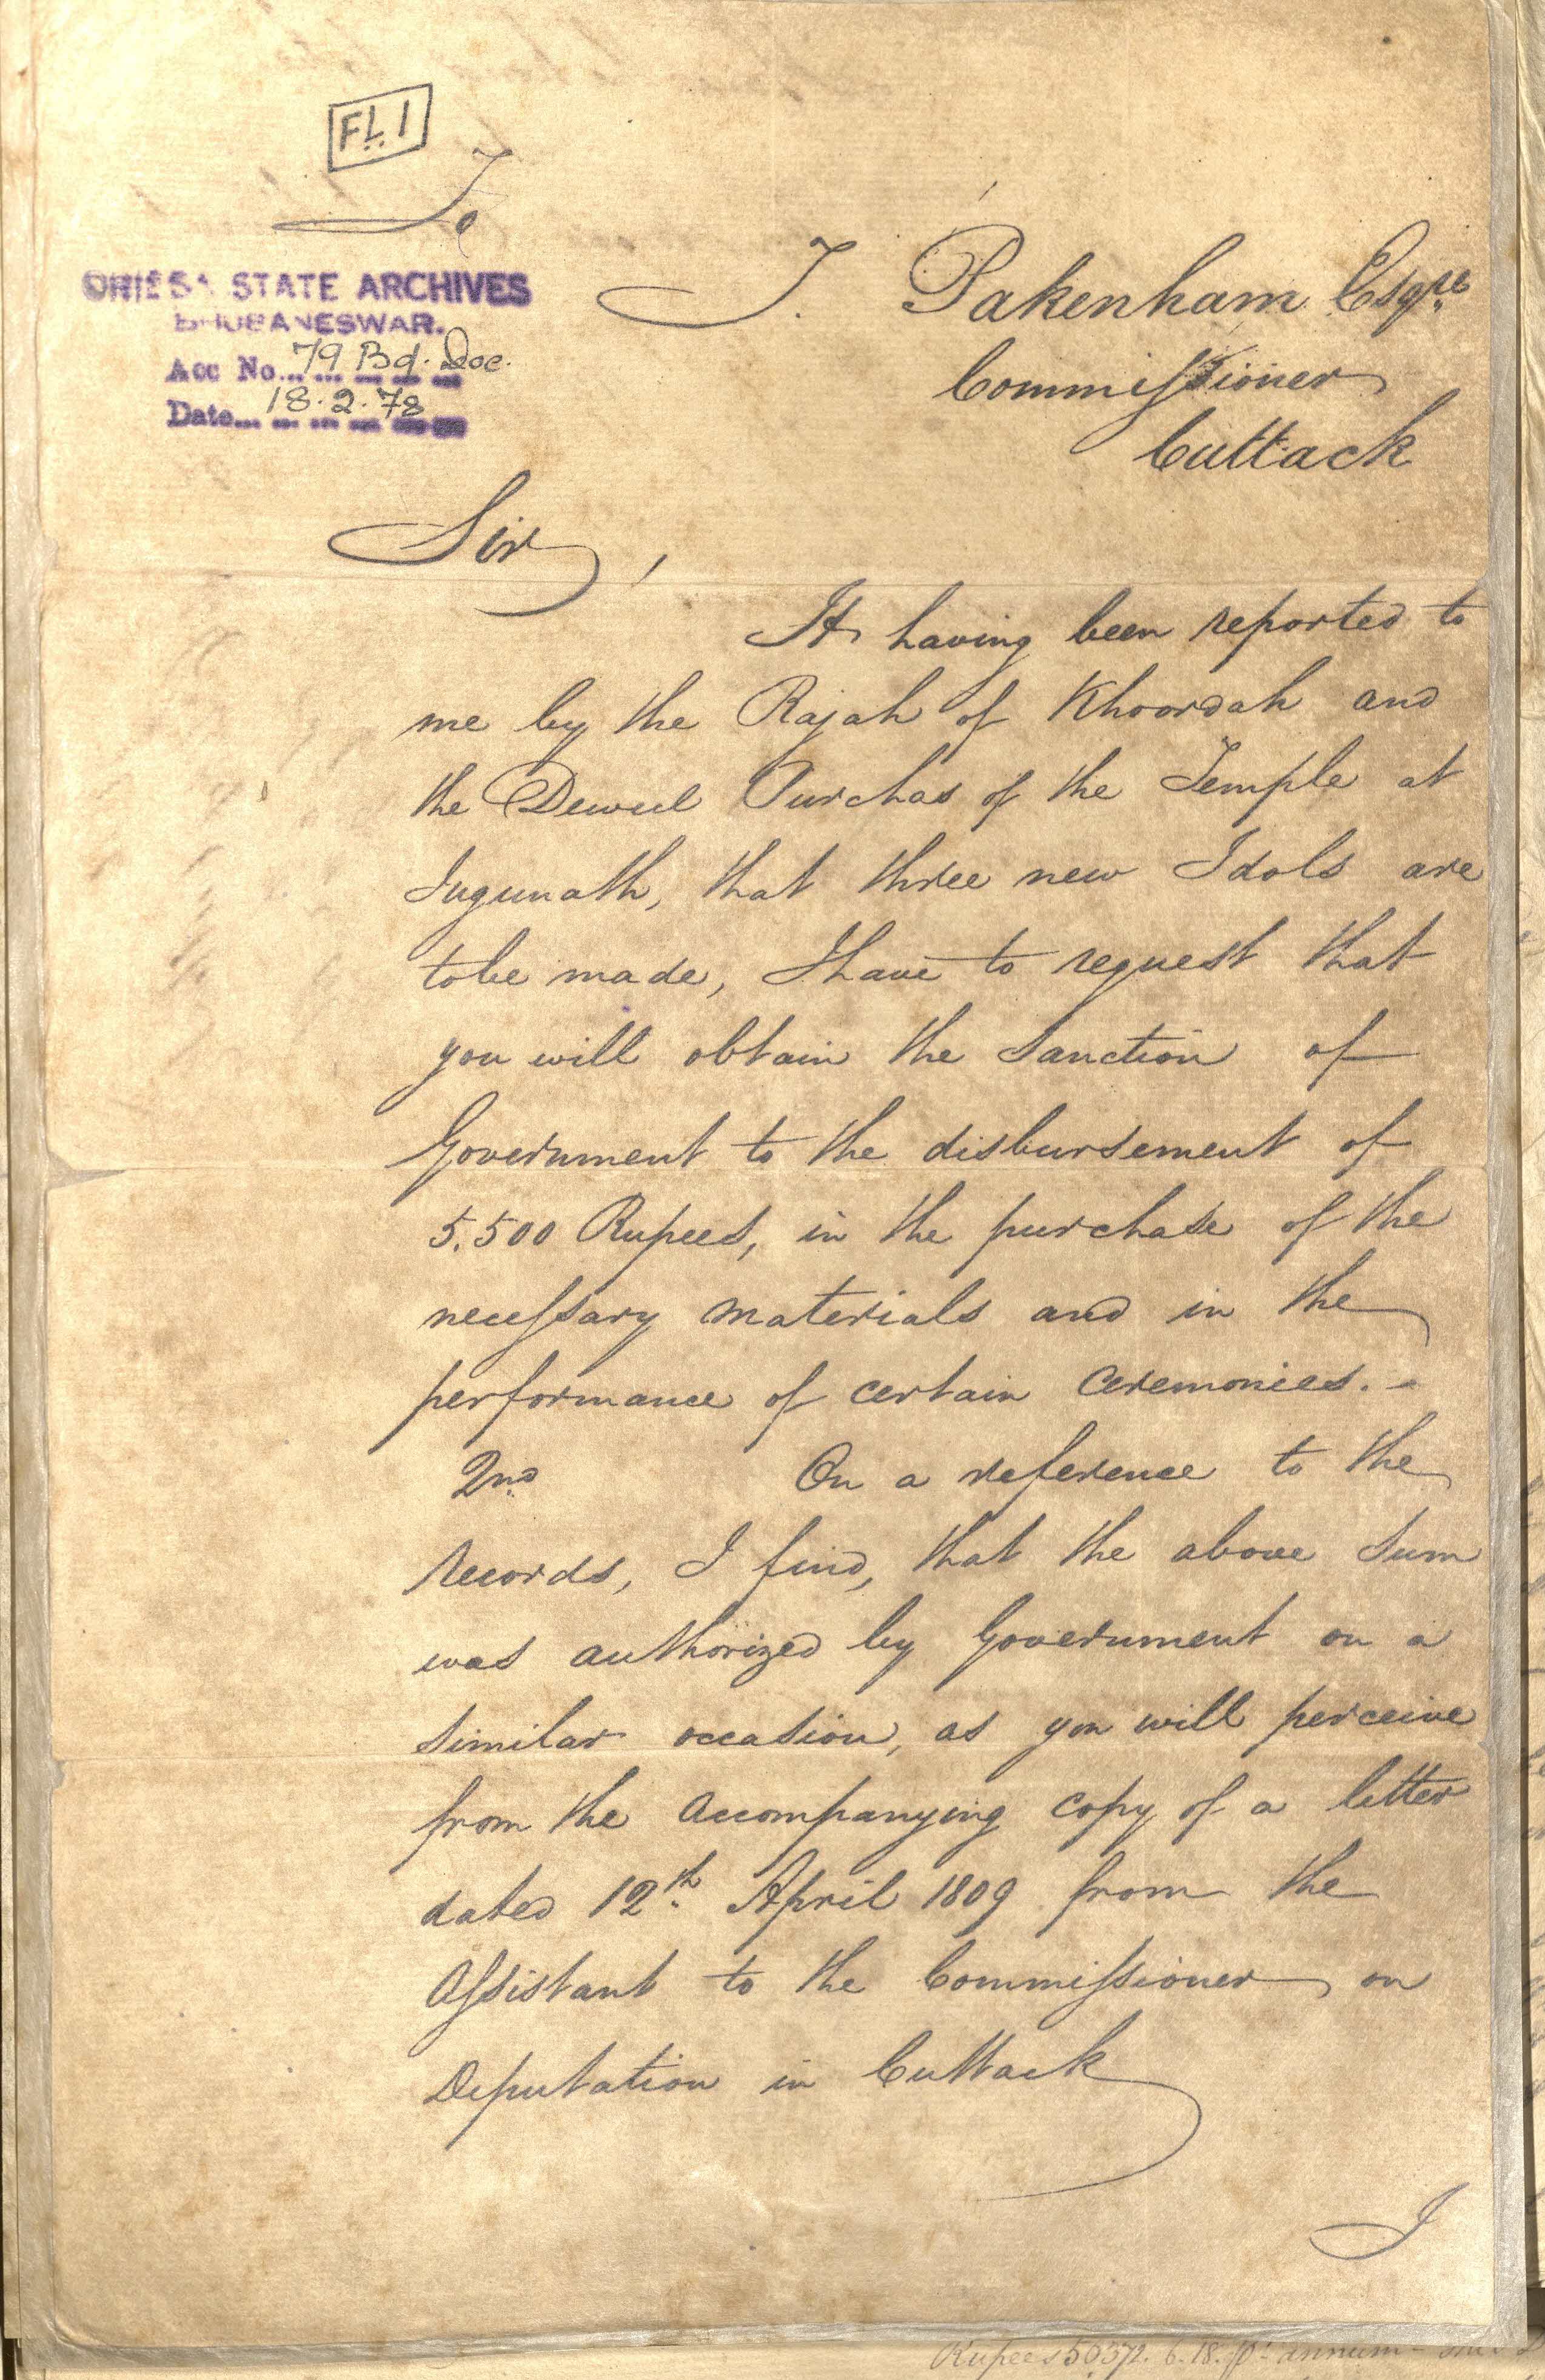 FL. 1
To
ORISSA STATE ARCHIVES
BHUBANESWAR.
Acc No. 79 Bd. Doc.
Date 18.2.78
T. Pakenham Esqre.
Commissioner
Cuttack
Sir,
It having been reported to
me by the Rajah of Khoordah and
the Dewul Purchas of the Temple at
Jugunath, that three new Idols are
to be made, I have to request that
you will obtain the Sanction of
Government to the disbursement of
5.500 Rupees, in the purchase of the
necessary materials and in the
performance of certain Ceremonies.-
2nd On a reference to the
records, I find, that the above Sum
was authorized by Government on a
similar occasion, as you will perceive
from the accompanying copy of a letter
dated 12th April 1809 from the
Assistant to the Commissioner on
Deputation in Cuttack
I
Rupees 50372. 6. 18. pr. annum